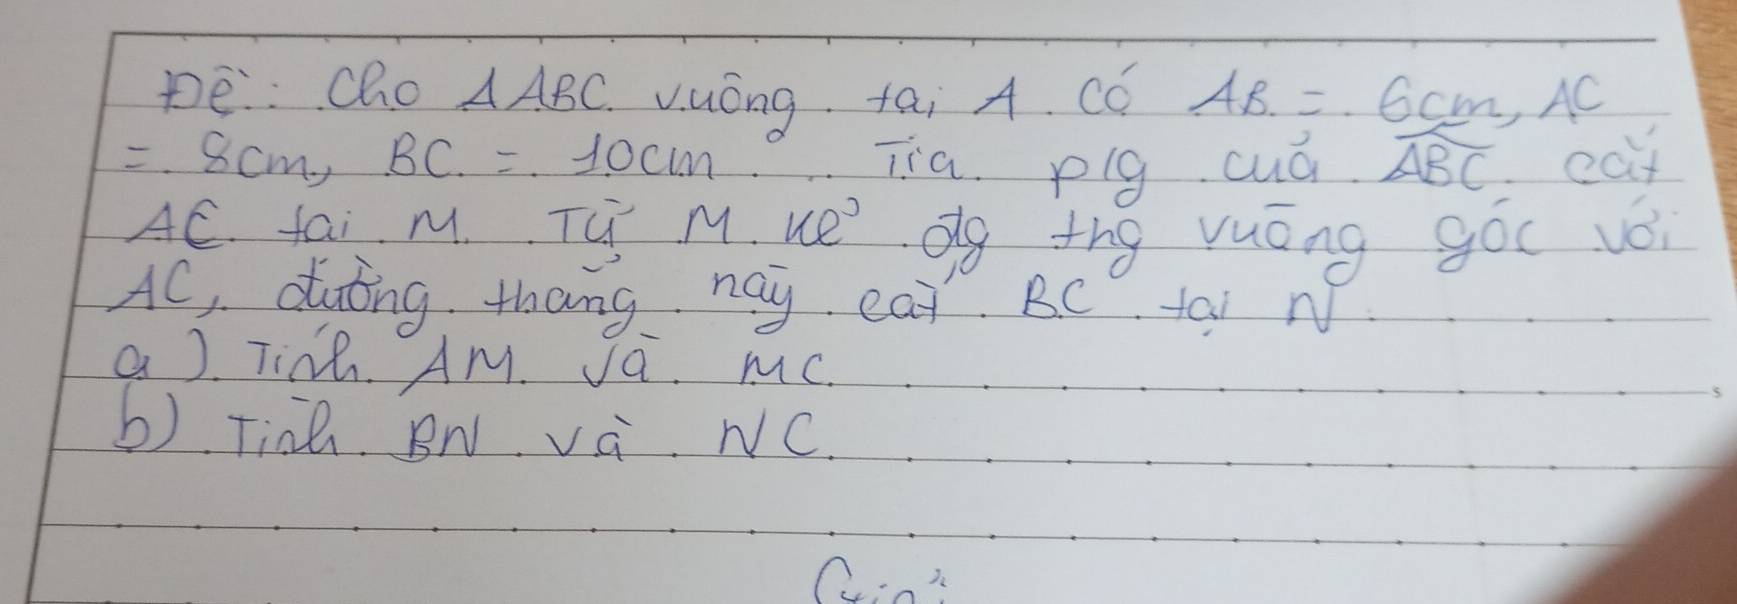 Đề: Cho Δ ABC vuông tại A có AB = 6cm, AC
= 8cm, BC = 10cm. Tia p/g của ABC cắt
AC tại M. Từ M kẻ đg thg vuông góc với
AC, đường thẳng này cắt BC tại N
a) Tính AM và MC.
b) Tính BN và NC.
Giải